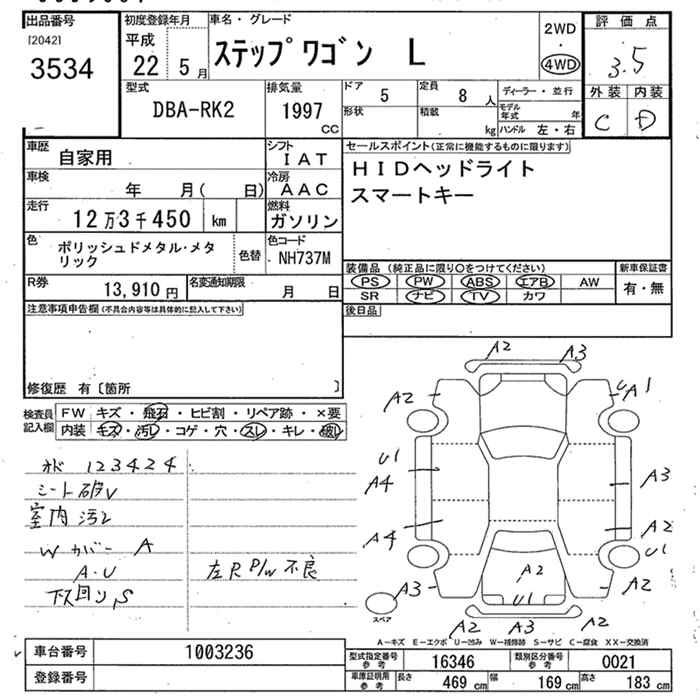 出品番号 初度登録年月 車名・グレード 2WD 評価点
[2042] 平成 ステップワゴン L ・ 3.5
3534 22 5月 4WD 外装 内装
型式 排気量 ドア 5 定員 8人 ディーラー・並行 C D
DBA-RK2 1997 形状 積載 モデル年式 年
cc kg ハンドル 左・右
車歴 自家用 シフト IAT セールスポイント(正常に機能するものに限ります)
車検 年 月( 日) 冷房 AAC HIDヘッドライト
走行 12万3千450 km 燃料 ガソリン スマートキー
色 ポリッシュドメタル・メタリック 色替 色コード NH737M
装備品(純正品に限り○をつけてください) 新車保証書
R券 13,910円 名変通知期限 月 日 PS PW ABS エアB AW 有・無
SR ナビ TV カワ
注意事項申告欄(不具合内容等は具体的に記入して下さい) 後日品
修復歴 有〔箇所 〕
検査員記入欄 FW キズ・飛石・ヒビ割・リペア跡・×要
内装 キズ・汚レ・コゲ・穴・スレ・キレ・破レ
A2 A3
A2 U A1
U1
A4 A3
A4 A2
U1
A3 A2 A2
U1
A2 A3 A2
スペア
123424
シート破レ
室内汚レ
Wカバー A
A・U
下回り、S
左R P/W 不良
A-キズ E-エクボ U-凹み W-補修跡 S-サビ C-腐食 XX-交換済
車台番号 1003236 型式指定番号 参考 16346 類別区分番号 参考 0021
登録番号 車庫証明用 参考 長さ 469cm 幅 169cm 高さ 183cm